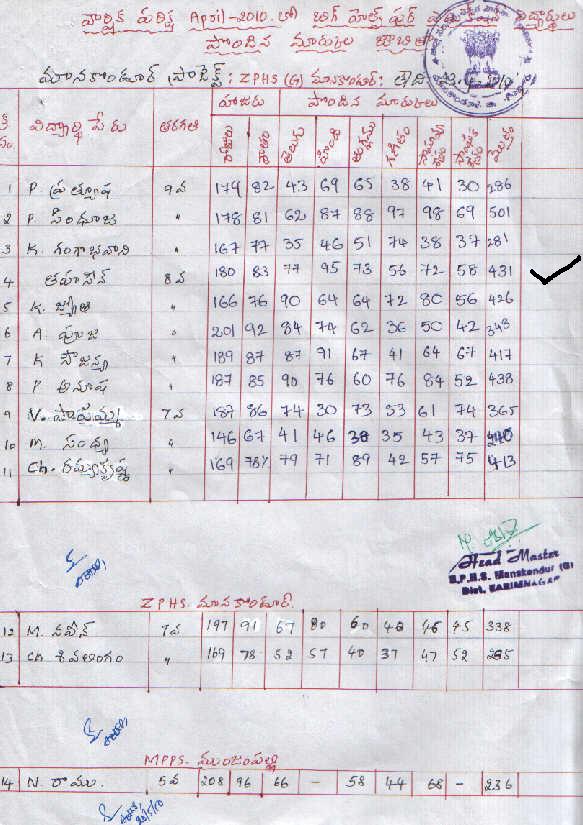 వార్షిక పరీక్ష April-2010. లో విద్యార్థులు
పొందిన మార్కుల
మానకొండూర్ ZPHS (G) మానకొండూర్:
హాజరు పొందిన మార్కులు
విద్యార్థి పేరు తరగతి తెలుగు హిందీ గణితం మొత్తం
1 P. ప్రత్యూష 9వ 179 82 43 69 65 38 41 30 286
2 P. సింధూజ " 178 81 62 87 88 97 98 69 501
3 K. గంగాభవాని " 167 77 35 46 51 74 38 37 281
4 తహసీన్ 8వ 180 83 77 95 73 56 72 58 431
5 K. జ్యోతి " 166 76 90 64 64 72 80 56 426
6 A. పూజ " 201 92 84 74 62 36 50 42 348
7 K సౌజన్య " 189 87 87 91 67 41 64 67 417
8 P అనూష " 187 85 90 76 60 76 84 52 438
9 N. 7వ 187 86 74 30 73 53 61 74 365
10 M. సంధ్య " 146 67 41 46 38 35 43 37 240
11 Ch. రమ్యకృష్ణ " 169 78% 79 71 89 42 57 75 413
Head Master
Z.P.H.S. Manakondur (G)
Dist. KARIMNAGAR
ZPHS. మానకొండూర్.
12 M. నవీన్ 7వ 197 91 67 80 60 46 45 338
13 Ch. శివలింగం " 169 78 52 57 40 37 47 52 285
MPPS. ముంజంపల్లి
14 N. రాము. 5వ 208 96 66 - 58 44 68 - 236